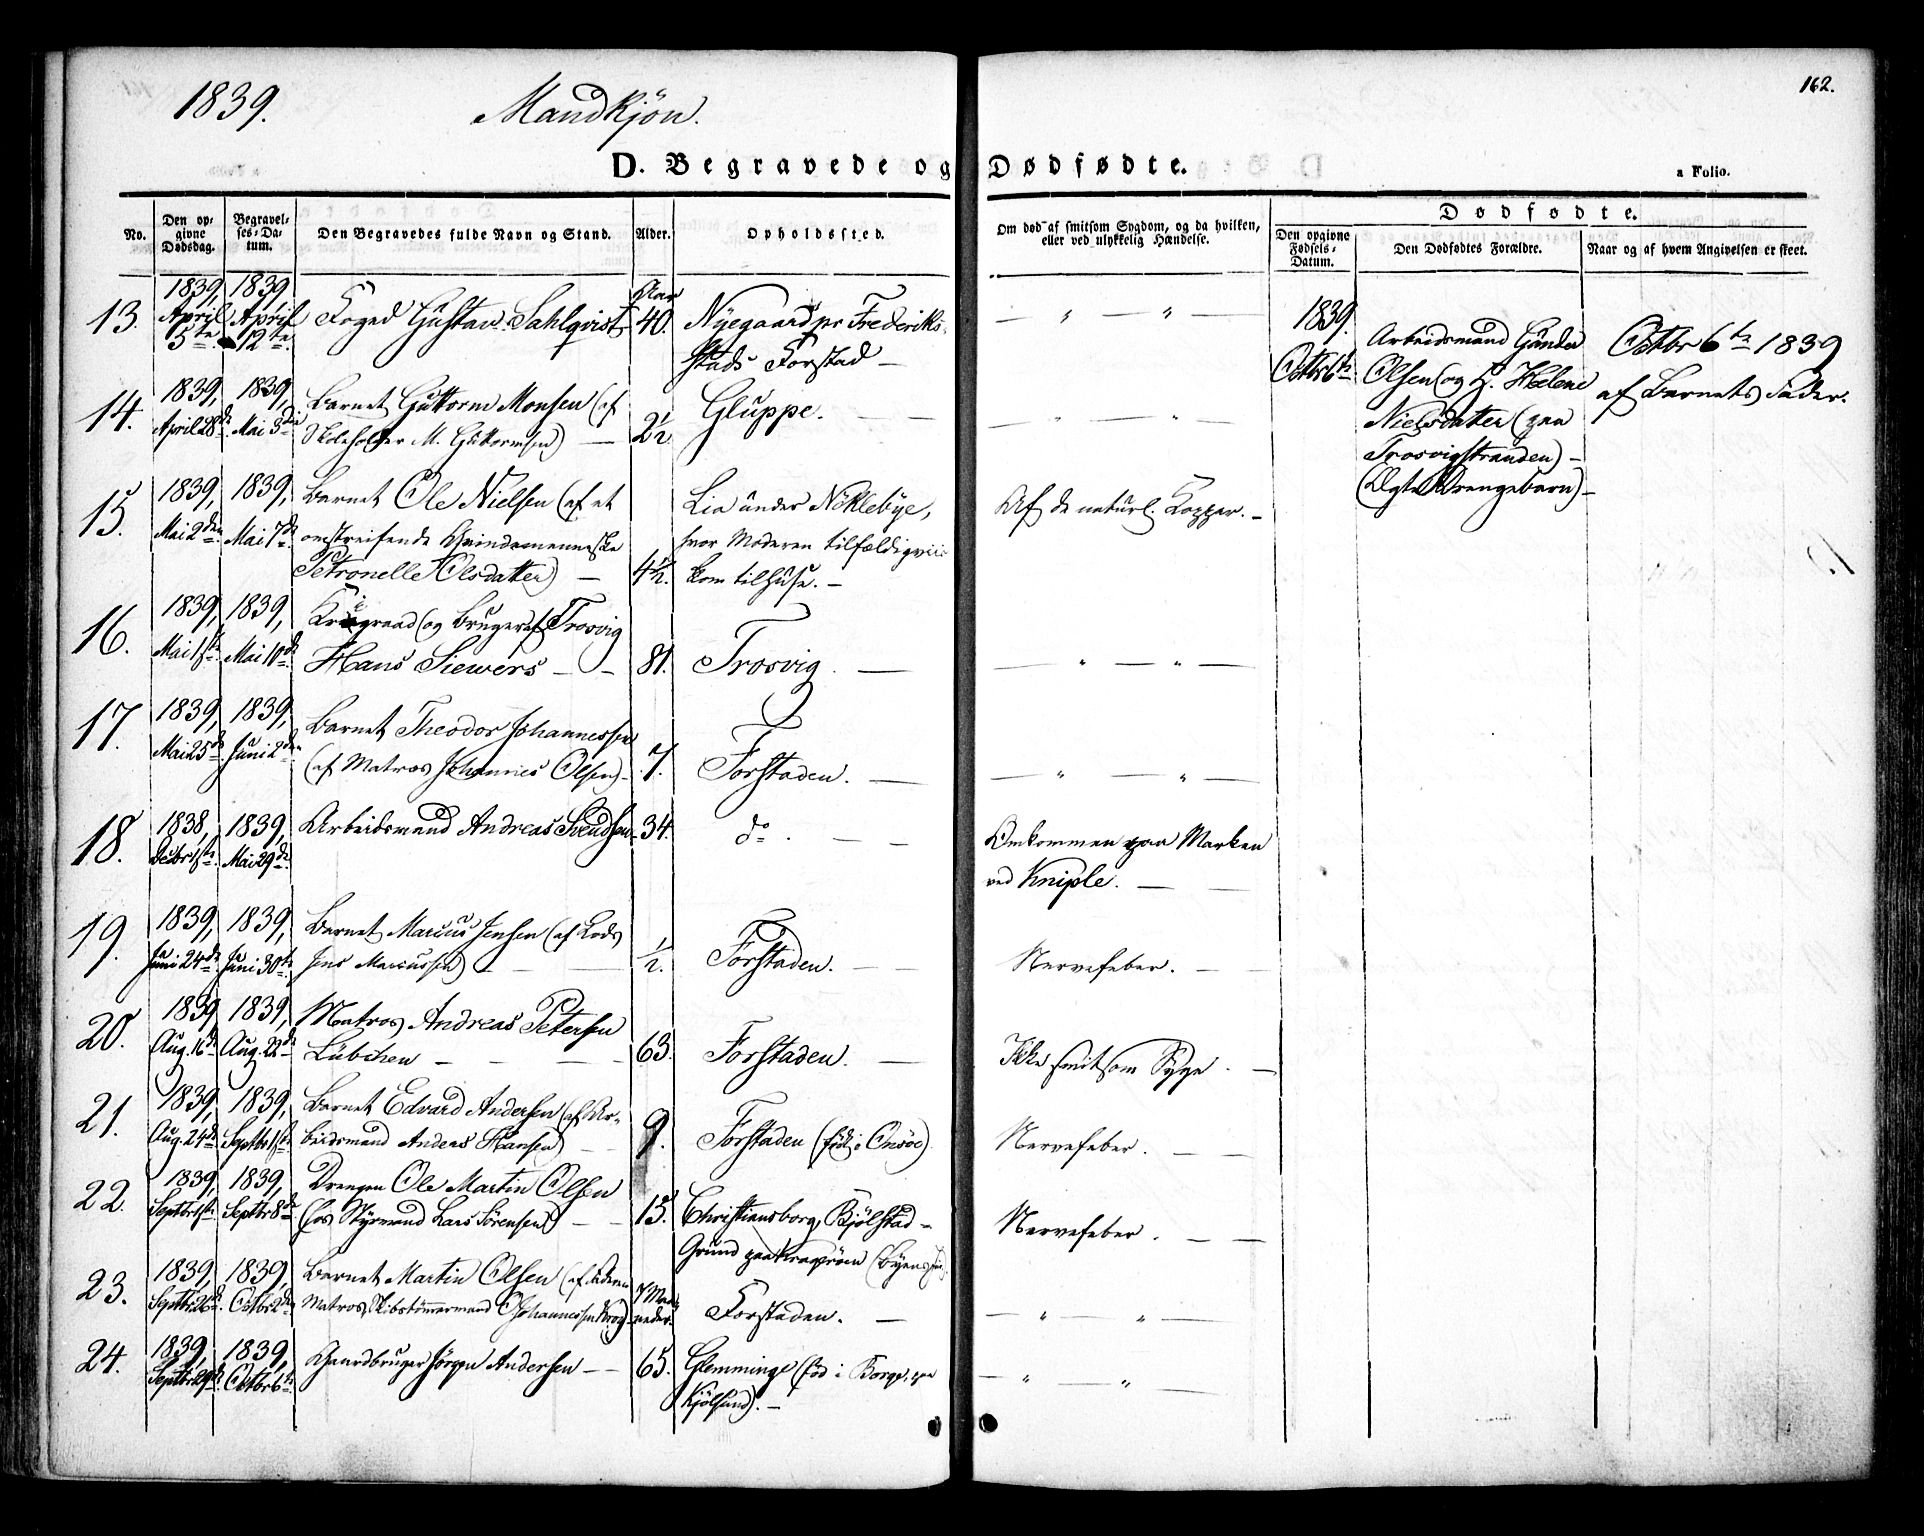 162.
1839. Mandkjön.
D. Begravede og Dødfødte.
a Folio.
No.
Den opgivne Dødsdag.
Begravelses-Datum.
Den Begravedes fulde Navn og Stand.
Alder.
Opholdssted.
Om død af smitsom Sygdom, og da hvilken, eller ved ulykkelig Hændelse.
Dødfødte.
Den opgivne Fødsels-Datum.
Den Dødfødtes Forældre.
Naar og af hvem Angivelsen er skeet.
13. 1839, April 5te. 1839 April 12te. Foged Gustav Sahlqvist 40. Aar Nyegaard pr Frederiks-
stads Forstad —
14. 1839, April 28de. 1839, Mai 3die Barnet Guttorm Monsen (af
Skoleholder M. Guttormsen) — 2½ Gluppe. —
15. 1839, Mai 2den 1839, Mai 7de. Barnet Ole Nielsen (af et
omstreifende Qvindemenneske
Petronelle Olsdatter) — 4½. Lia under Nöklebye,
hvor Moderen tilfældigviis
kom tilhuse. —
Af de naturl. Kopper. —
16. 1839, Mai 1ste 1839, Mai 10de. Krigsraad (og Bruger af Trosvig
Hans Siewers — 81. Trosvig. —
17. 1839, Mai 25de 1839, Juni 2den Barnet Theodor Johannessen
(af Matros Johannes Olsen) — 7. Forstaden. —
18. 1838, Decbr 1ste. 1839, Mai 29de. Arbeidsmand Andreas Svendsen 34. do. —
Omkommen paa Marken
ved Kniple. —
19. 1839, Juni 24de 1839, Juni 30te. Barnet Marcus Jensen (af Lods
Jens Marcussen) — ½. Forstaden. —
Nervefeber. —
20. 1839 Aug. 16de 1839, Aug. 22de Matros Andreas Petersen
Lübchen — 63. Forstaden. —
Ikke smitsom Syge. —
21. 1839, Aug. 24de 1839, Septbr 1ste Barnet Edvard Andersen (af Ar-
beidsmand Anders Hansen) — 9. Forstaden (föd i Onsöe)
Nervefeber. —
22. 1839, Septbr 1ste 1839, Septbr 8de Drengen Ole Martin Olsen
(hos Styrmand Lars Sörensen) — 15. Christiansborg, Bjölstad-
Grund paa
Nervefeber. —
23. 1839, Septbr 26de. 1839, Octbr 2den Barnet Martin Olsen (af
Matros, Skibstömmermand O Johannessen Krog) 7 Maaneder. Forstaden. —
24. 1839, Septbr 29de. 1839, Octbr 6te Gaardbruger Jörgen Andersen — 65. Glemminge (föd i Borge, paa
Kjölsund). —
1839.
Octbr 6te
Arbeidsmand Gunder
Olsen (og H. Helene
Nielsdatter (paa
Trosvigstranden) —
(Ægte Drengebarn) —
Octbr 6te 1839
af Barnets Fader.